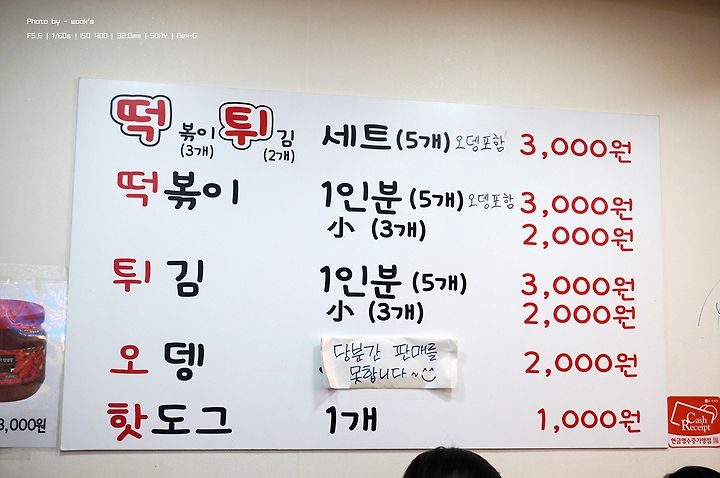 Photo by - wook's
F5.6 | 1/60s | ISO 400 | 32.0mm | SONY | Nex-6
떡볶이(3개) 튀김(2개) 세트(5개) 오뎅포함 3,000원
떡볶이 1인분(5개) 오뎅포함 3,000원
小 (3개) 2,000원
튀김 1인분(5개) 3,000원
小 (3개) 2,000원
오뎅 2,000원
당분간 판매를
못합니다~
핫도그 1개 1,000원
3,000원
Cash
Receipt
현금영수증가맹점